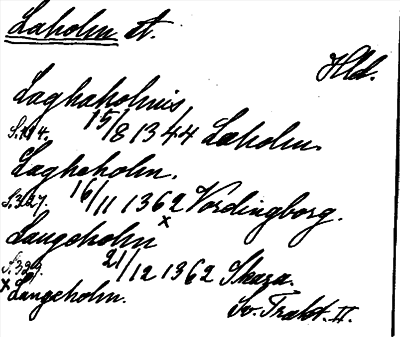 Laholm st.
Hld.
Laghaholmis,
S.194. 15/8 1344 Laholm.
Lagheholm.
S.327. 16/11 1362 Vordingborg.
x
Laugeholm
S.329. 21/12 1362 Skara.
x Langeholm.
Sv. Trakt. II.